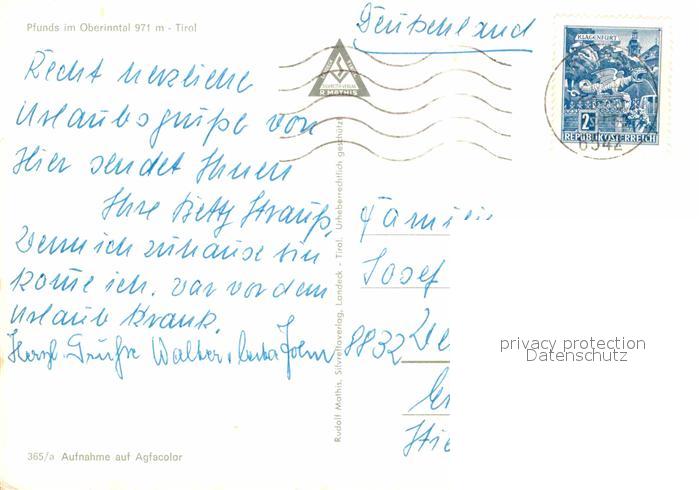 Pfunds im Oberinntal 971 m - Tirol
Deutschland
KLAGENFURT
2S
REPUBLIK ÖSTERREICH
6542
R. MATHIS
Recht herzliche
Urlaubsgrüße von
Hier sendet Ihnen
Ihre Betty Strauß,
Wenn ich zuhause bin
kome ich. war vor dem
Urlaub krank.
Herzl. Grüße Walter
Familie
Josef
8832
Rudolf Mathis, Silvrettaverlag, Landeck - Tirol. Urheberrechtlich geschützt
365/a Aufnahme auf Agfacolor
privacy protection
Datenschutz